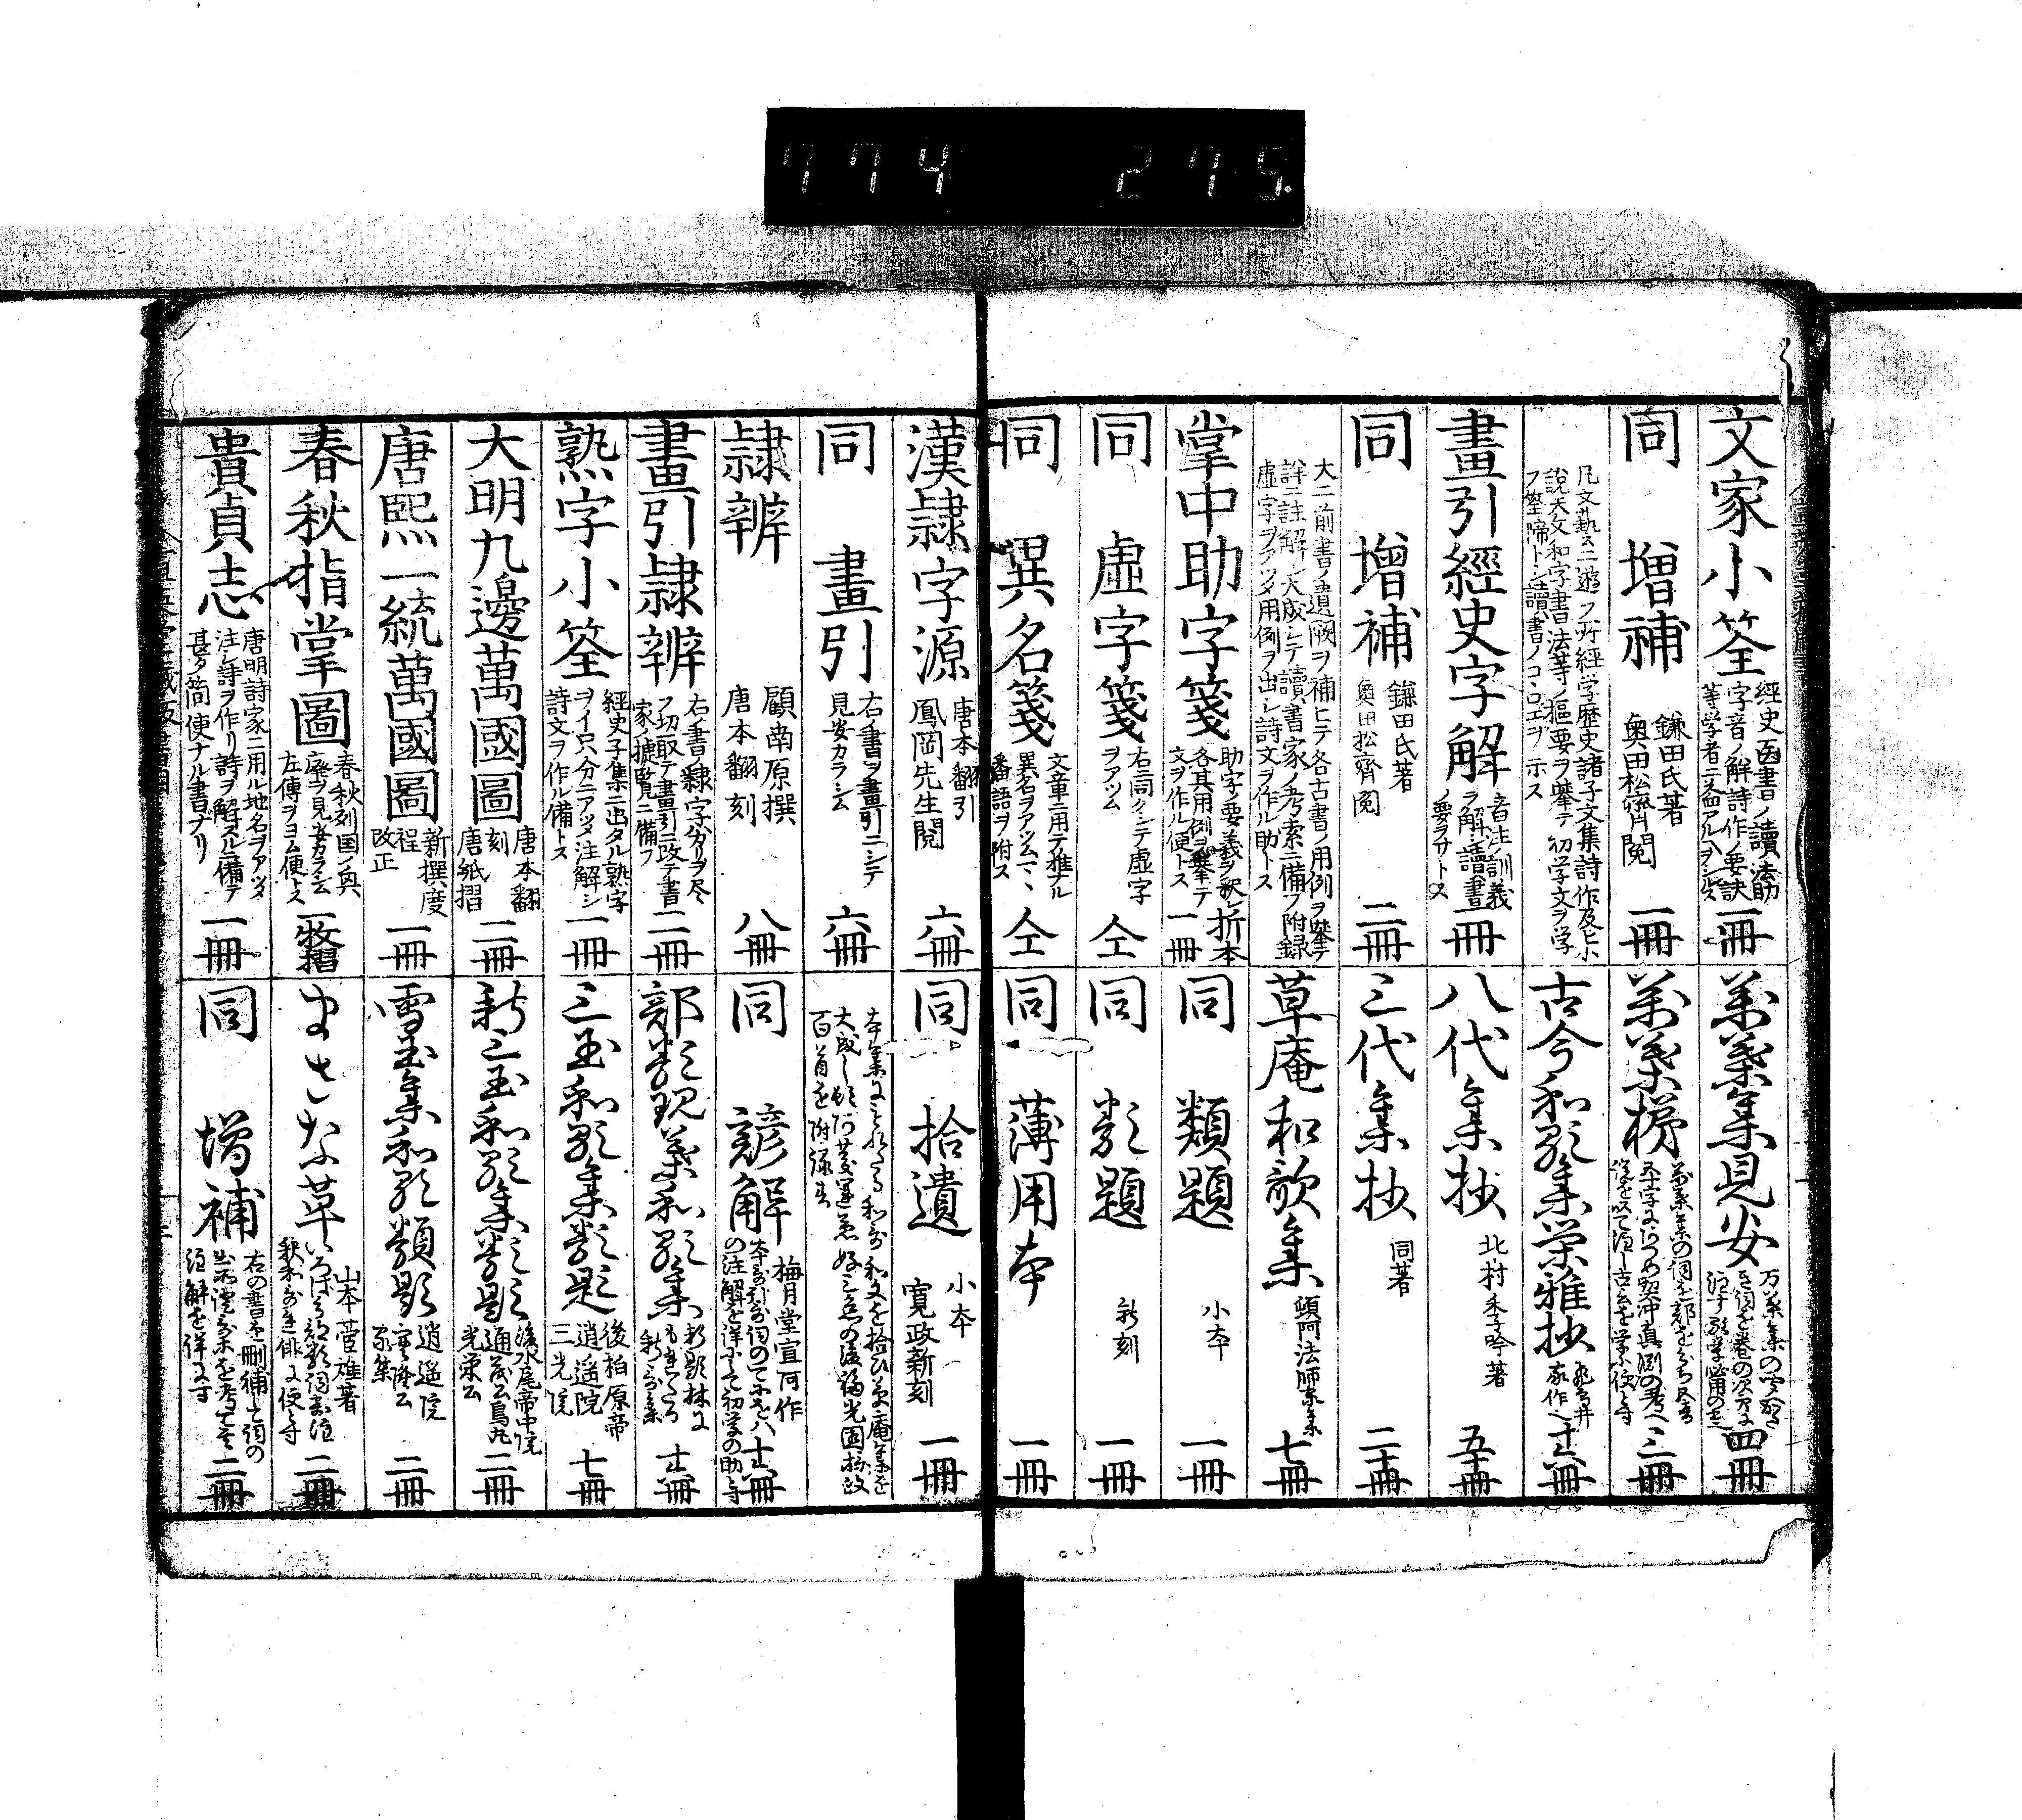 774 275.
文家小筌
字音ノ解詩作ノ要訣
一冊
同 増補
鎌田氏著
奥田松齋閲
一冊
凡文藝ニ遊フ所経学歴史諸子文集詩作及ヒ小
説天文和字書法等ノ樞要ヲ挙テ初学文ヲ学
フ筌蹄トシ讀書ノココロエヲ示ス
畫引經史字解
音注訓義
ヲ解シ讀書
ノ要ヲサトス
一冊
同 増補
鎌田氏著
奥田松齋閲
二冊
大ニ前書ノ遺闕ヲ補ヒテ各古書ノ用例ヲ挙テ
詳ニ註解シ大成シテ讀書家ノ考索ニ備フ附録
虚字ヲアツメ用例ヲ出シ詩文ヲ作ル助トス
掌中助字箋
助字ノ要義ヲ釈シ
各其用例ヲ挙テ
文ヲ作ル便トス
折本
一冊
同 虚字箋
右ニ同クシテ虚字
ヲアツム
仝
同 異名箋
文章ニ用テ雅ナル
異名ヲアツム
番語ヲ附ス
仝
漢隷字源
唐本翻引
鳳岡先生閲
六冊
同 畫引
右ノ書ヲ畫引ニシテ
見安カラシム
六冊
隷辨
顧南原撰
唐本翻刻
八冊
畫引隷辨
右ノ書ノ隷字バカリヲ尽
ク切取テ畫引ニ改テ書
家ノ捷覧ニ備フ
二冊
熟字小筌
經史子集ニ出タル熟字
ヲイロハ分ニアツメ注解シ
詩文ヲ作ル備トス
一冊
大明九邊萬國圖
唐本翻
刻
唐紙摺
二冊
唐熙一統萬國圖
新撰度
程
改正
一冊
春秋指掌圖
春秋列国ノ興
廃ヲ見安カラシム
左傳ヲヨム便トス
一枚摺
貴貞志
唐明詩家ニ用ル地名ヲアツメ
注シ詩ヲ作リ詩ヲ解スルニ備テ
甚タ簡便ナル書ナリ
一冊
萬葉集見安
四冊
萬葉梯
三冊
古今和歌集栄雅抄
飛鳥井
家作
十六冊
八代集抄
北村季吟著
五十冊
三代集抄
同著
二十冊
草庵和歌集
頓阿法師家集
七冊
同 類題
小本
一冊
同 類題
新刻
一冊
同 薄用本
一冊
同 拾遺
小本
寛政新刻
一冊
百首を附録す
同 諺解
梅月堂宣阿作
の注解を詳にして初学の助とす
十六冊
部類現葉和歌集
新題林に
もれたる
新歌集
十六冊
三玉和歌集類題
後柏原帝
逍遥院
三光院
七冊
新三玉和歌集類題
後水尾帝中院
通茂公烏丸
光栄公
二冊
雪玉集和歌類題
逍遥院
實隆公
家集
二冊
まさな草
山本菅雄著
二冊
同 増補
右の書を刪補して詞の
注解を詳にす
二冊